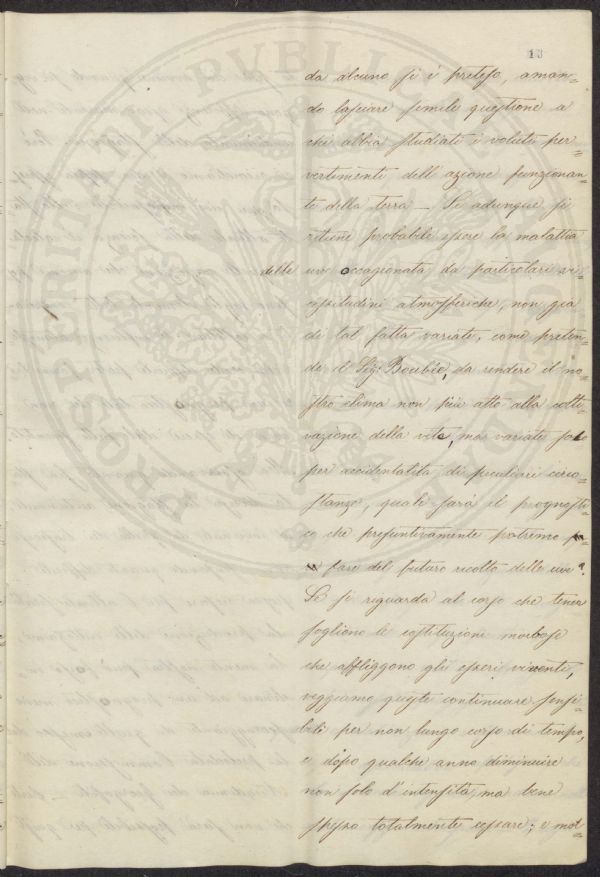 13
da alcuno si è preteso, aman=
do lasciare simile questione a
chi abbia studiati i voluti per=
vertimenti dell'azione funzionan=
te della terra _ Se adunque si
ritiene probabile essere la malattia
delle uve occagionata da particolari vi=
cissitudini atmosferiche, non già
di tal fatta variate, come preten=
de il Sig. Boubée, da rendere il no=
stro clima non più atto alla colti=
vazione della vite, ma variate solo
per accidentalità di peculiari circo=
stanze, quale sarà il prognosti=
co che presuntivamente potremo
fare del futuro ricolto delle uve?
Se si riguarda al corso che tener
sogliono le costituzioni morbose
che affliggono gli esseri viventi,
veggiamo queste continuare sensi=
bili per non lungo corso di tempo,
e dopo qualche anno diminuire
non solo d'intensità, ma bene
spesso totalmente cessare; e mol=
PROSPERITATI PVBLICAE